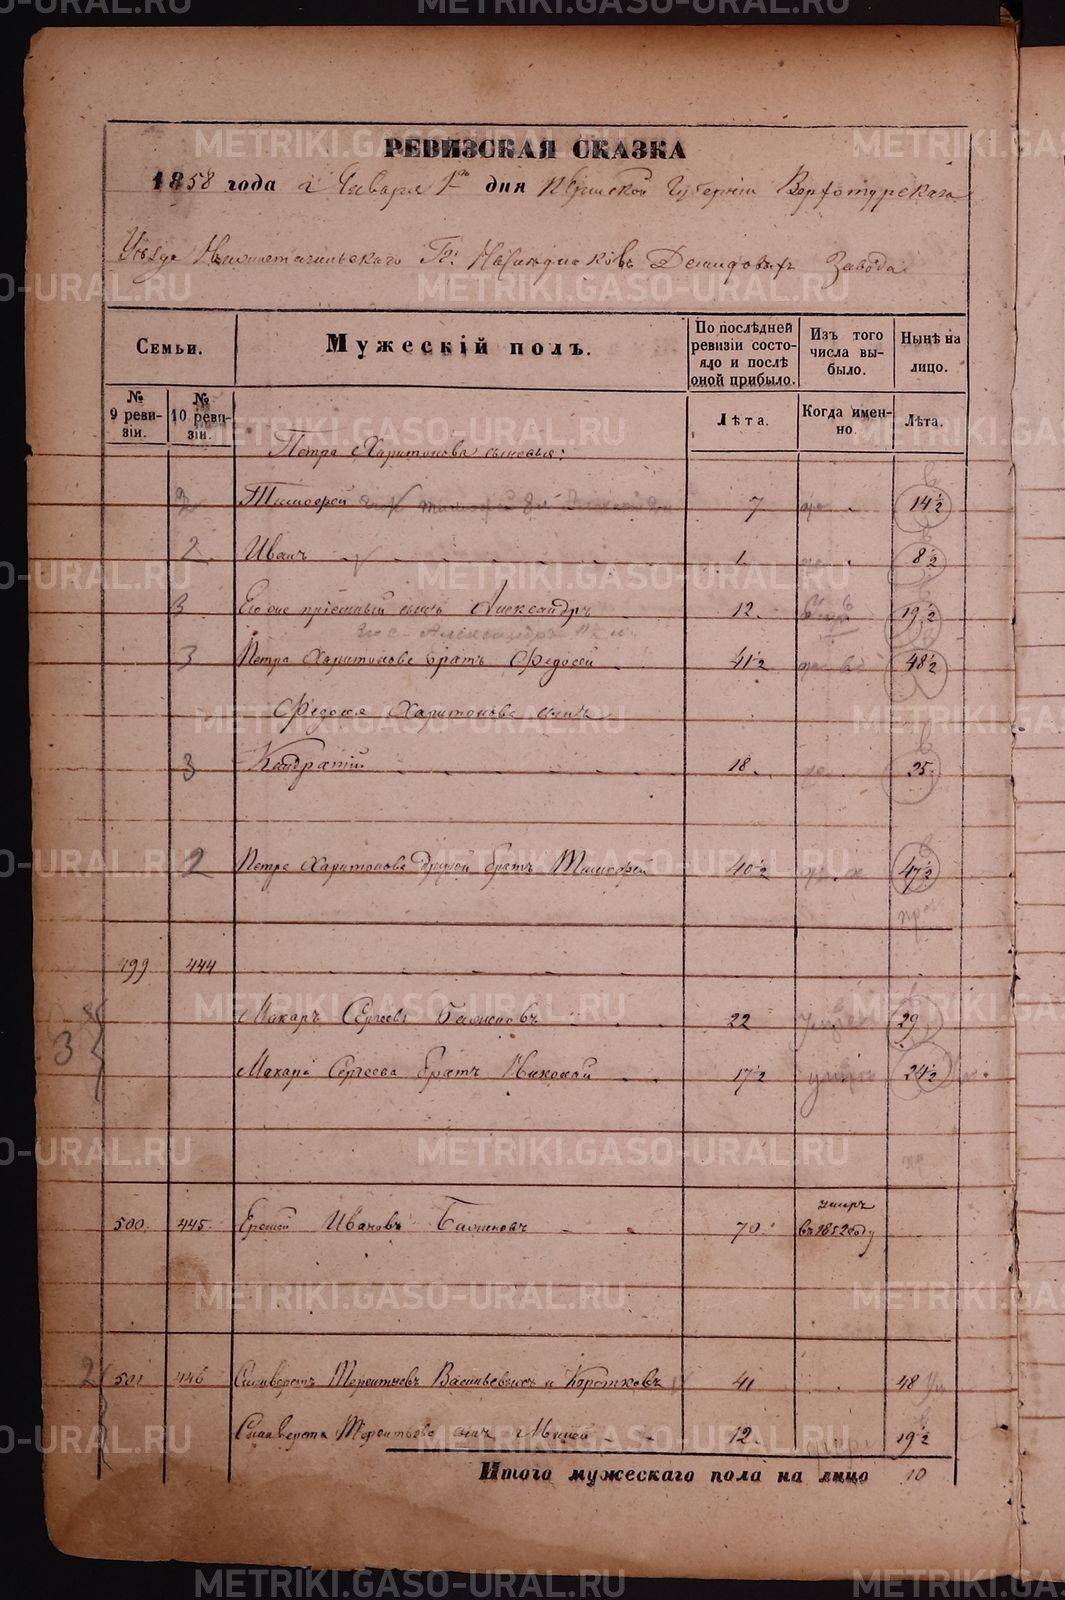 РЕВИЗСКАЯ СКАЗКА
1858 года Января 1го дня Пермской Губерніи Верхотурскаго
Уѣзда Нижнетагильскаго Гг. Наслѣдниковъ Демидовыхъ Завода
Семьи.
Мужескій полъ.
По послѣдней ревизіи состояло и послѣ оной прибыло.
Изъ того числа выбыло.
Нынѣ на лицо.
№ 9 ревизіи.
№ 10 ревизіи.
Лѣта.
Когда именно.
Лѣта.
Петра Харитонова сыновья:
2 Тимофей 7 14½
2 Иванъ 1 8½
3 Его же пріемный сынъ Александръ 12 19½
3 Петра Харитонова братъ Федосей 41½ 48½
Федосея Харитонова сынъ
3 Кондратій 18 25
2 Петра Харитонова другой братъ Тимофей 40½ 47½
499 444
Макаръ Сергеевъ Баженовъ 22 29
3
Макара Сергеева братъ Николай 17½ 24½
500 445 Ермолай Ивановъ Баженовъ 70 умеръ въ 1852 году
2 501 446 Силиверстъ Терентьевъ Васильевыхъ и Коротковъ 41 48
Силиверста Терентьева сынъ 12 19½
Итого мужескаго пола на лицо 10
METRIKI.GASO-URAL.RU